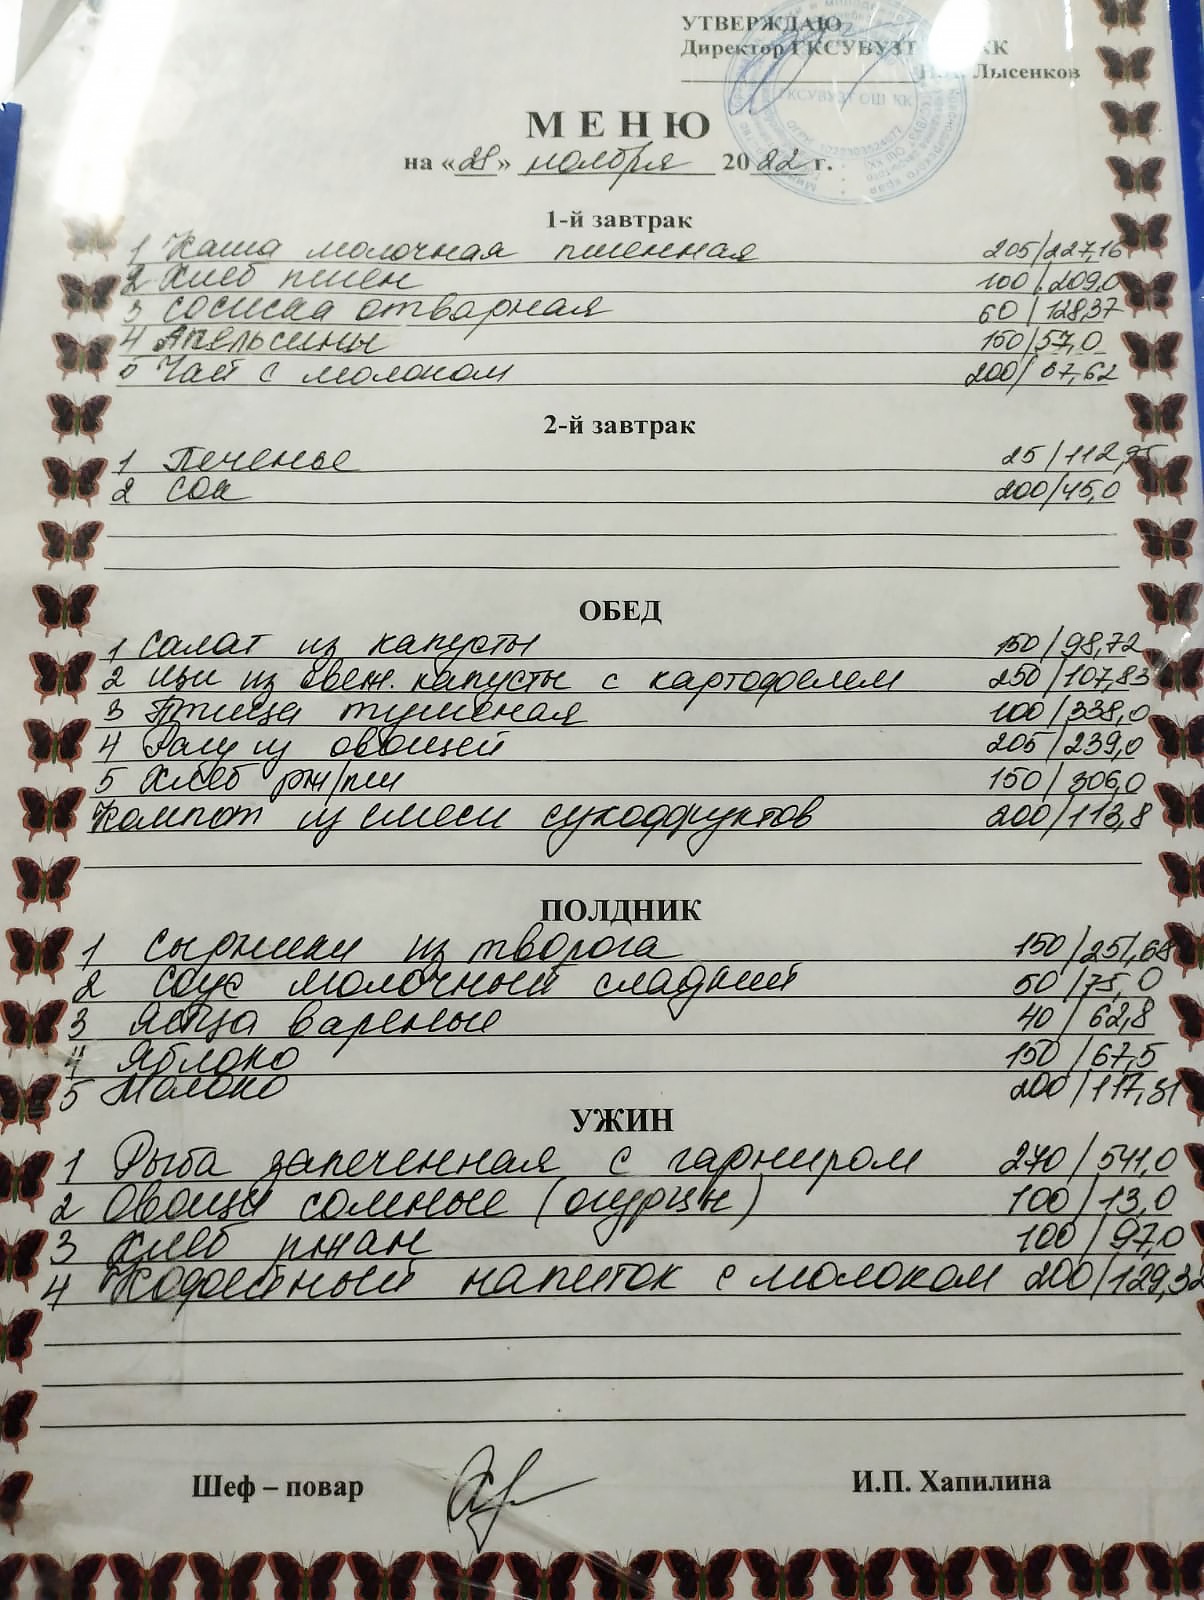 УТВЕРЖДАЮ
Директор ГКСУВУЗТ КК
Лысенков
ГКСУВУЗТ ОШ КК
МЕНЮ
на «28» ноября 2022 г.
1-й завтрак
1 Каша молочная пшенная 205/227,16
2 Хлеб пшен 100/209,0
3 Сосиска отварная 60/128,37
4 Апельсины 150/57,0
5 Чай с молоком 200/67,62
2-й завтрак
1 Печенье 25/112,95
2 Сок 200/45,0
ОБЕД
1 Салат из капусты 150/98,72
2 Щи из свеж. капусты с картофелем 250/107,83
3 Птица тушеная 100/338,0
4 Рагу из овощей 205/239,0
5 Хлеб рж/пш 150/306,0
Компот из смеси сухофруктов 200/113,8
ПОЛДНИК
1 Сырники из творога 150/251,68
2 Соус молочный сладкий 50/75,0
3 Яйца вареные 40/62,8
4 Яблоко 150/67,5
5 Молоко 200/117,31
УЖИН
1 Рыба запеченная с гарниром 270/541,0
2 Овощи соленые (огурцы) 100/13,0
3 Хлеб ржан 100/97,0
4 Кофейный напиток с молоком 200/129,32
Шеф – повар И.П. Хапилина